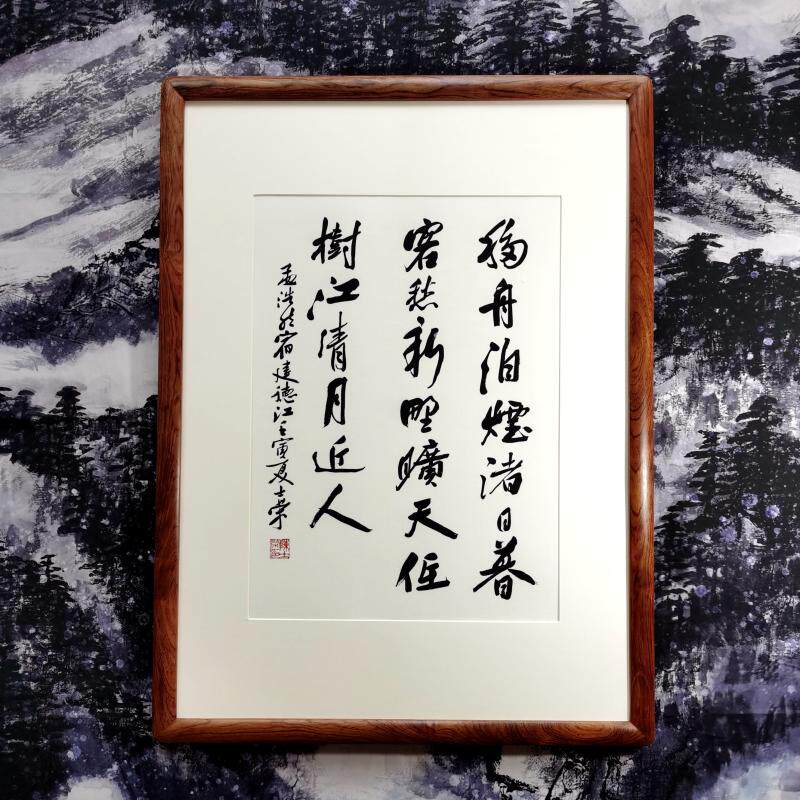 移舟泊煙渚日暮
客愁新野曠天低
樹江清月近人
孟浩然宿建德江壬寅夏士榮